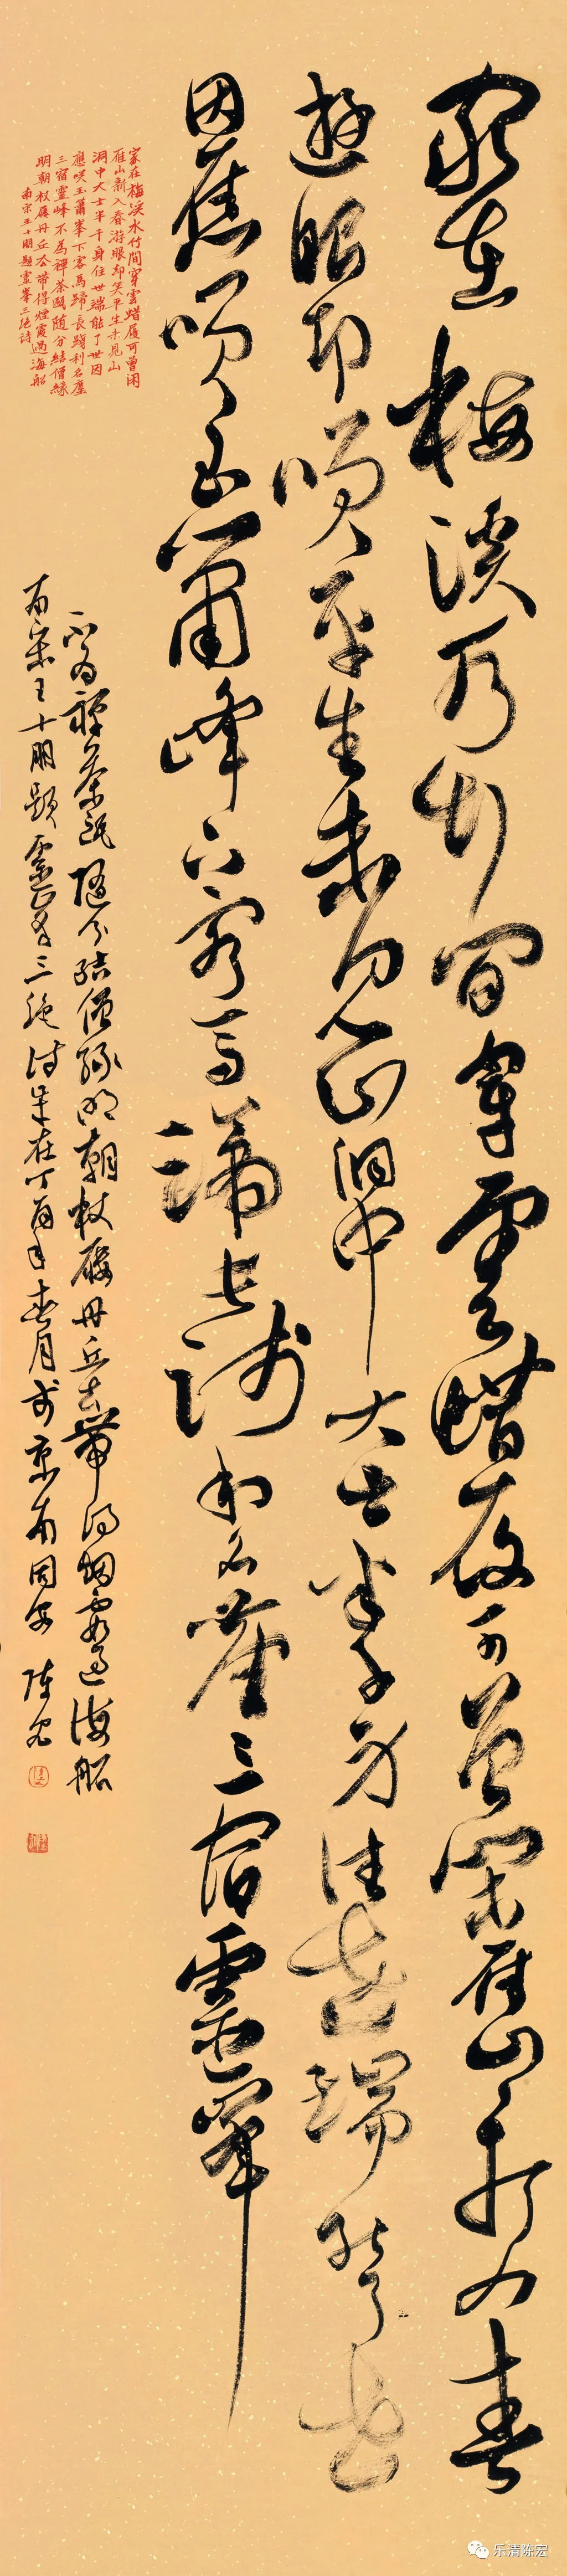 家在梅溪水竹間穿雲蜡屐可曾閑雁山新入春
遊眼却咲平生未見山洞中大士半千身住世端能了世
因應咲玉簫峰下客馬蹄長踐利名塵三宿靈峯
家在梅溪水竹間穿雲蜡屐可曾閑
雁山新入春游眼却笑平生未見山
洞中大士半千身住世端能了世因
應咲玉簫峯下客馬蹄長踐利名塵
三宿靈峰不為禪茶甌随分結僧緣
明朝杖屨丹丘去带得煙霞過海船
南宋王十朋題靈峯三絕詩
不為禪茶甌隨分結僧緣明朝杖屨丹丘去帶得烟霞過海船
南宋王十朋題靈峯三絕詩歲在丁酉年春月於京南 陳宏
乐清陈宏